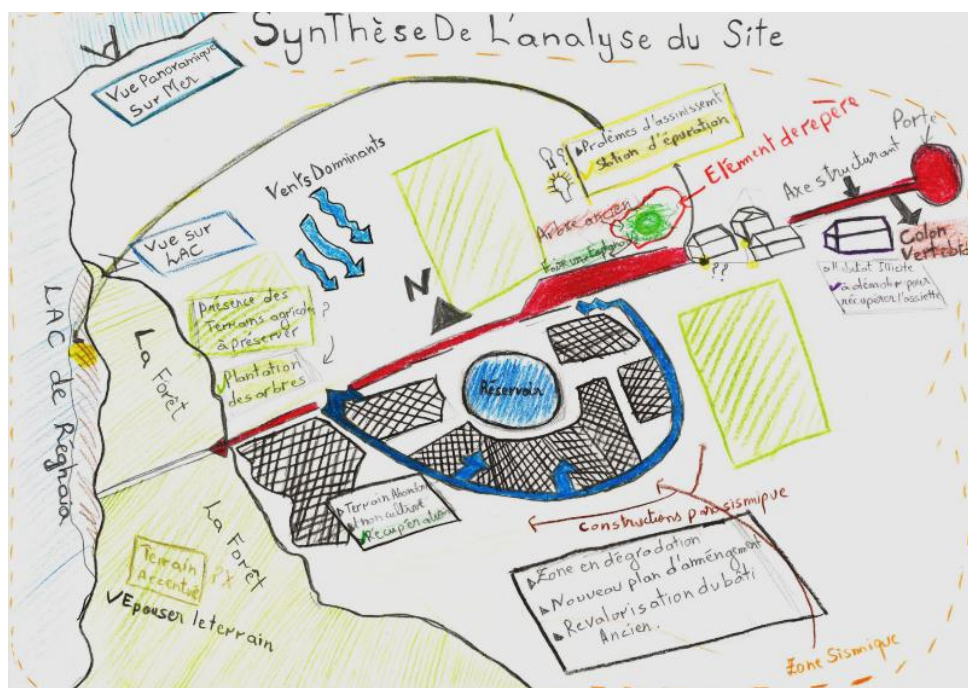 Synthèse De L'analyse du Site
Vue Panoramique
Sur Mer
Vents Dominants
▶Prolèmes d'assinissemt
✓Station d'épuration
Elément de repère
Porte
Axe structurant
Arbre ancien
Vue sur
LAC
N
??
Colon
Vertebral
▶Habitat Illicite
✓à démolir pour
récupérer l'assiette
présence des
Terrains agricoles
à préserver
?
✓Plantation
des arbres
LAC de Réghaia
La Forêt
Réservoir
La Forêt
▶Terrain Abandon
et non cultivé
✓Récupération
Constructions parasismique
Terrain
Accentué
?X
✓Epouser le terrain
▶Zone en dégradation
▶Nouveau plan d'améngement
▶Revalorisation du bâti
Ancien.
Zone Sismique